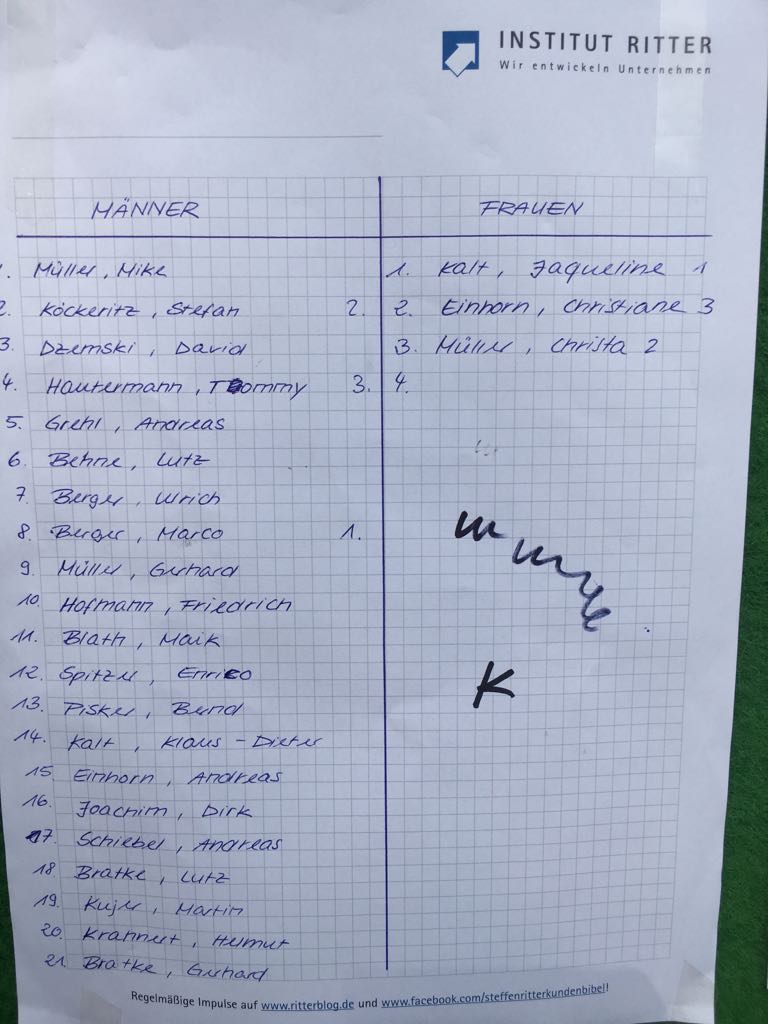 INSTITUT RITTER
Wir entwickeln Unternehmen
MÄNNER
1. Müller, Mike
2. Köckeritz, Stefan 2.
3. Dzemski, David
4. Hautermann, Tommy 3.
5. Grehl, Andreas
6. Behne, Lutz
7. Berger, Ulrich
8. Berger, Marco 1.
9. Müller, Gerhard
10. Hofmann, Friedrich
11. Blath, Maik
12. Spitzer, Enrico
13. Pisker, Bernd
14. Kalt, Klaus-Dieter
15. Einhorn, Andreas
16. Joachim, Dirk
17. Schiebel, Andreas
18. Bratke, Lutz
19. Kujer, Martin
20. Krahnert, Helmut
21. Bratke, Gerhard
FRAUEN
1. Kalt, Jaqueline 1
2. Einhorn, Christiane 3
3. Müller, Christa 2
4.
K
Regelmäßige Impulse auf www.ritterblog.de und www.facebook.com/steffenritterkundenbibel!